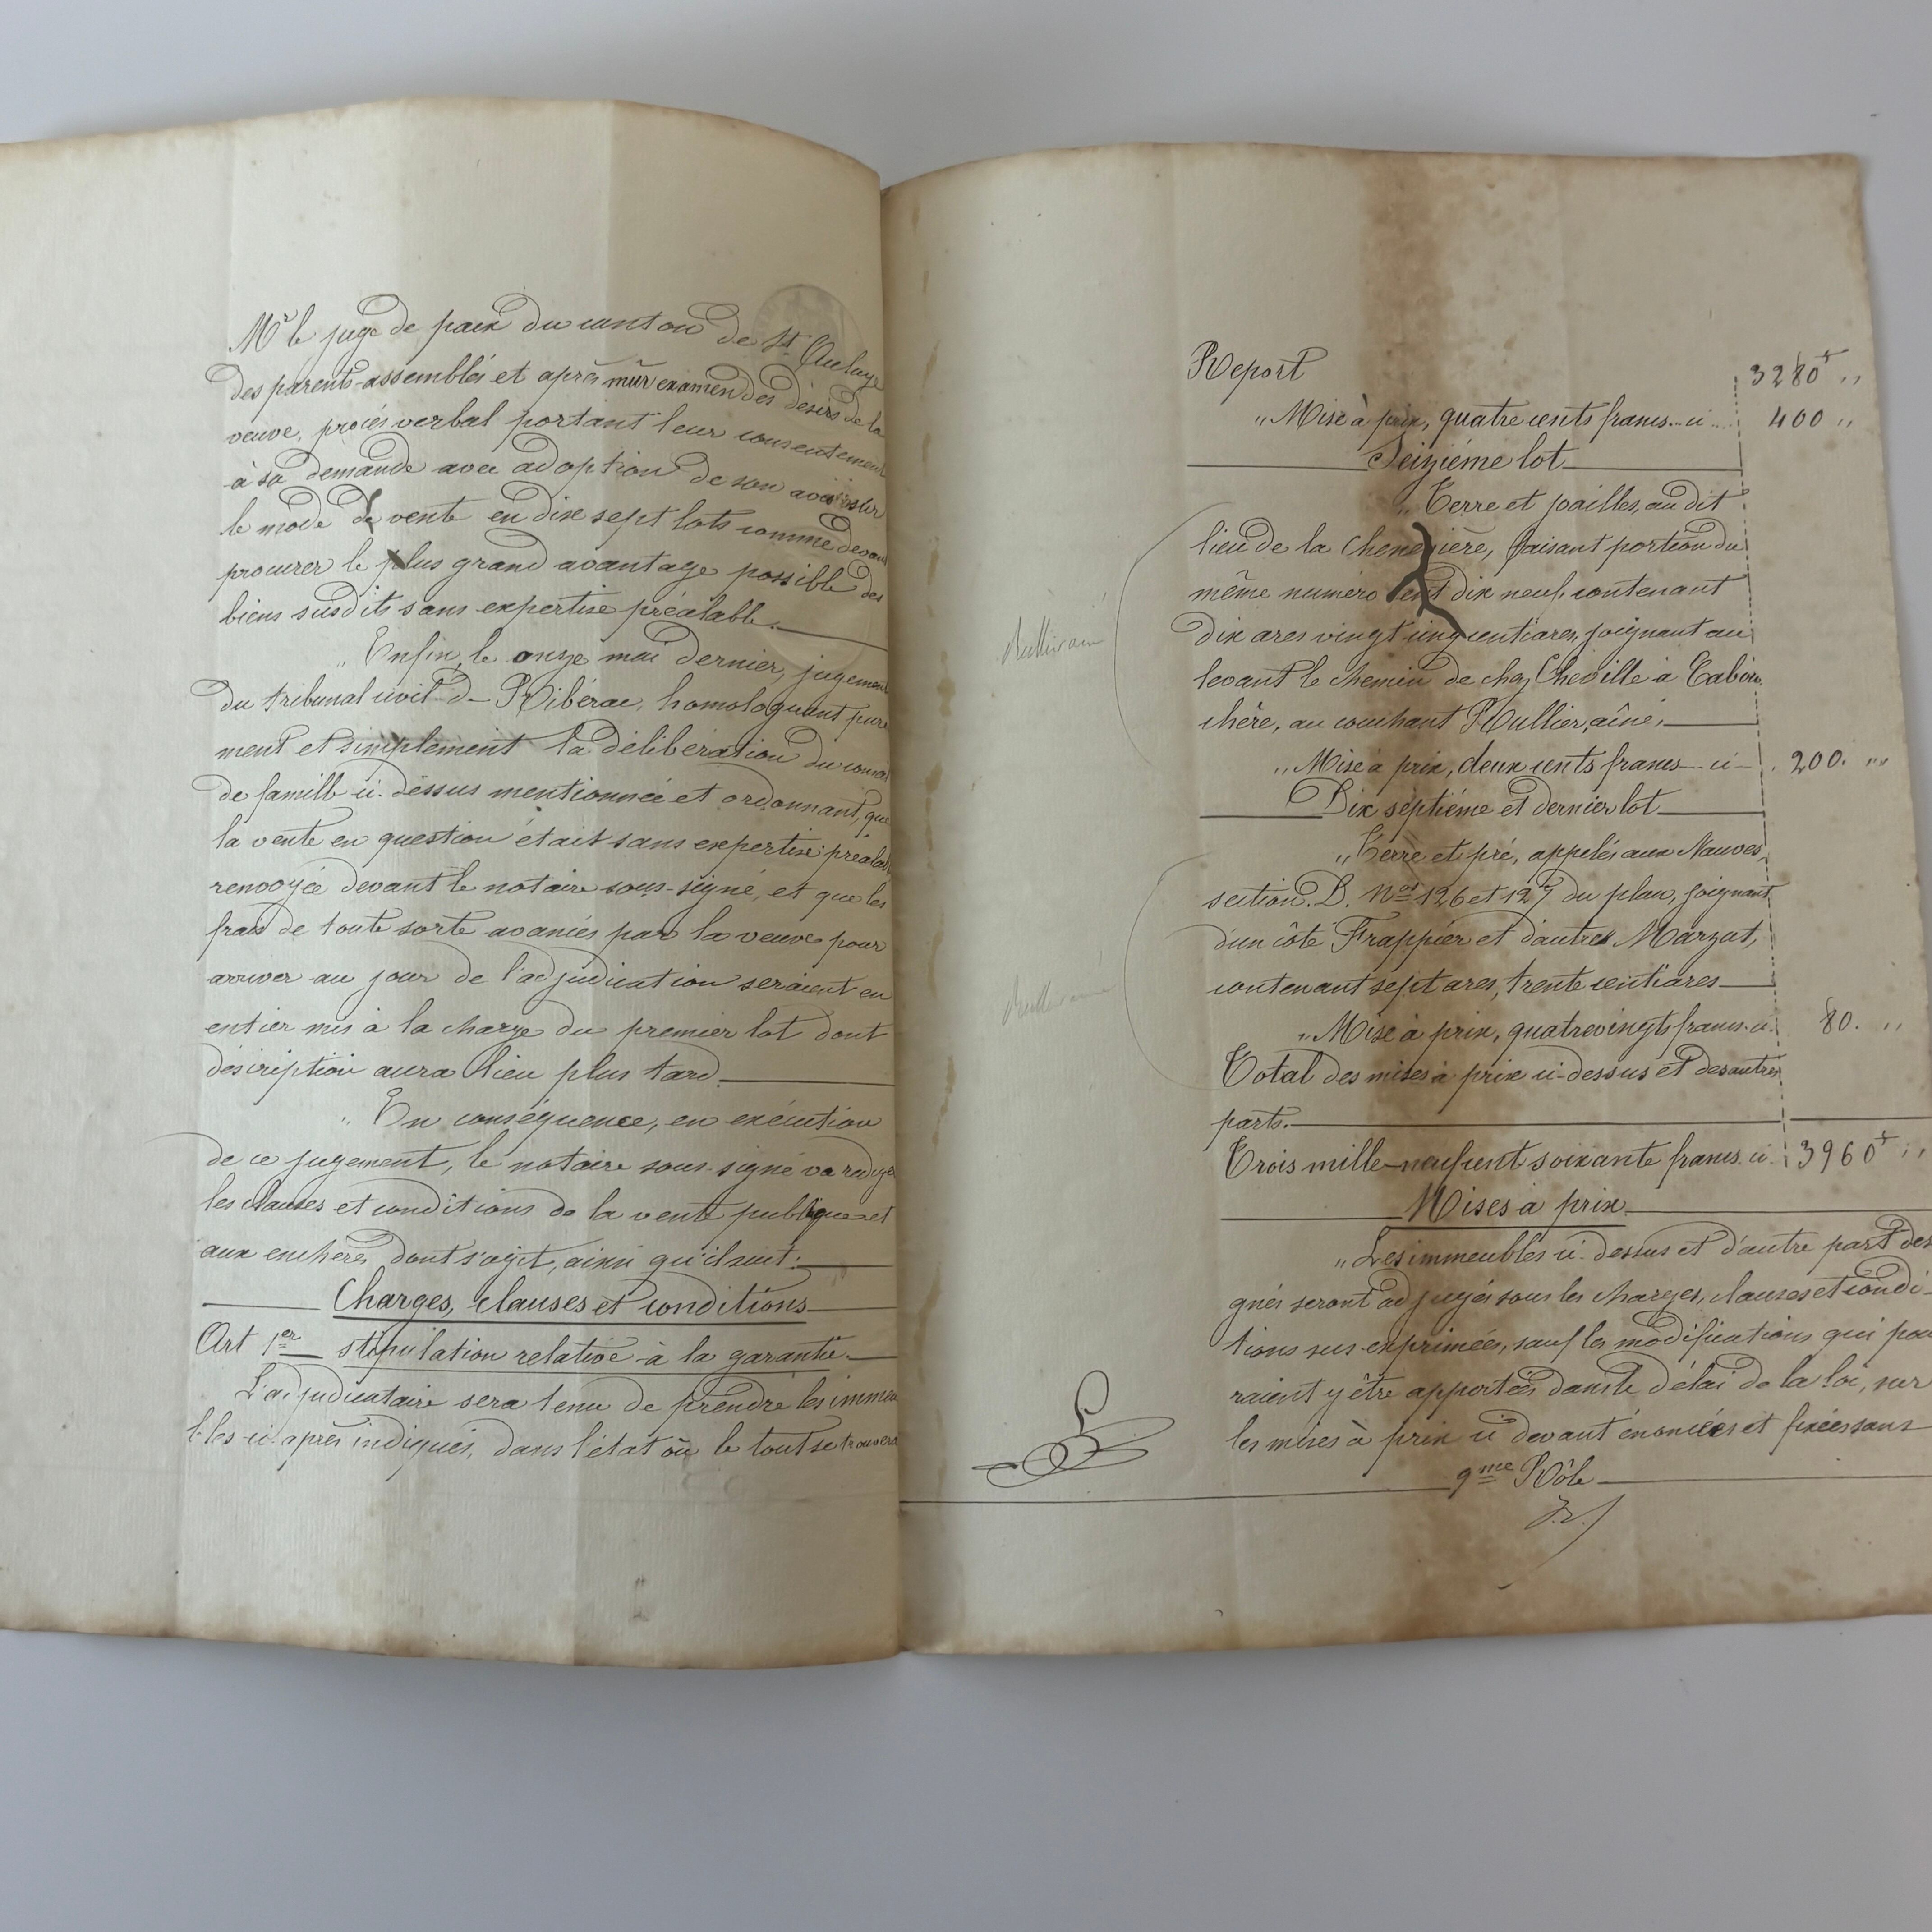 Mr le juge de paix du canton de St Aulaye
des parents assemblés et après mûr examen des désirs de la
veuve, procès verbal portant leur consentement
à sa demande avec adoption de son avis sur
le mode de vente en dix sept lots comme devant
procurer le plus grand avantage possible des
biens susdits sans expertise préalable.
„ Enfin, le onze mai dernier, jugement
du tribunal civil de Ribérac, homologuant pure
ment et simplement la délibération du conseil
de famille ci-dessus mentionnée et ordonnant, que
la vente en question était sans expertise préalable
renvoyée devant le notaire sous-signé, et que les
frais de toute sorte avancés par la veuve pour
arriver au jour de l'adjudication seraient en
entier mis à la charge du premier lot dont
désciription aura lieu plus tard.
„ En conséquence, en exécution
de ce jugement, le notaire sous-signé va rédiger
les clauses et conditions de la vente publique et
aux enchères dont s'agit, ainsi qu'il suit:
Charges, clauses et conditions
Art 1er stipulation relative à la garantie
L'adjudicataire sera tenu de prendre les immeu
bles ci-après indiqués, dans l'état où le tout se trouvera
Report 3280f „
„ Mise à prix, quatre cents francs ci 400 „
Seizième lot
„ Terre et pailles, au dit
lieu de la Chenevière, faisant portion du
même numéro cent dix neuf, contenant
dix ares vingt cinq centiares, joignant au
levant le chemin de chez Cheville à Tabou
chère, au couchant Rullier, aîné,
„ Mise à prix, deux cents francs ci 200. „
Dix septième et dernier lot
„ Terre et pré, appelés aux Nauves,
section D. Nos 126 et 127 du plan, joignant
d'un côté Frappier et d'autres Marzat,
contenant sept ares, trente centiares
„ Mise à prix, quatrevingts francs ci 80. „
Total des mises à prix ci-dessus et des autres
parts.
Trois mille neuf cent soixante francs ci 3960f „
Mises à prix
„ Les immeubles ci-dessus et d'autre part dési
gnés seront adjugés sous les charges, clauses et condi-
tions sus-exprimées, sauf les modifications qui pour
raient y être apportées dans le délai de la loi, sur
les mises à prix ci devant énoncées et fixées sans
9me Rôle